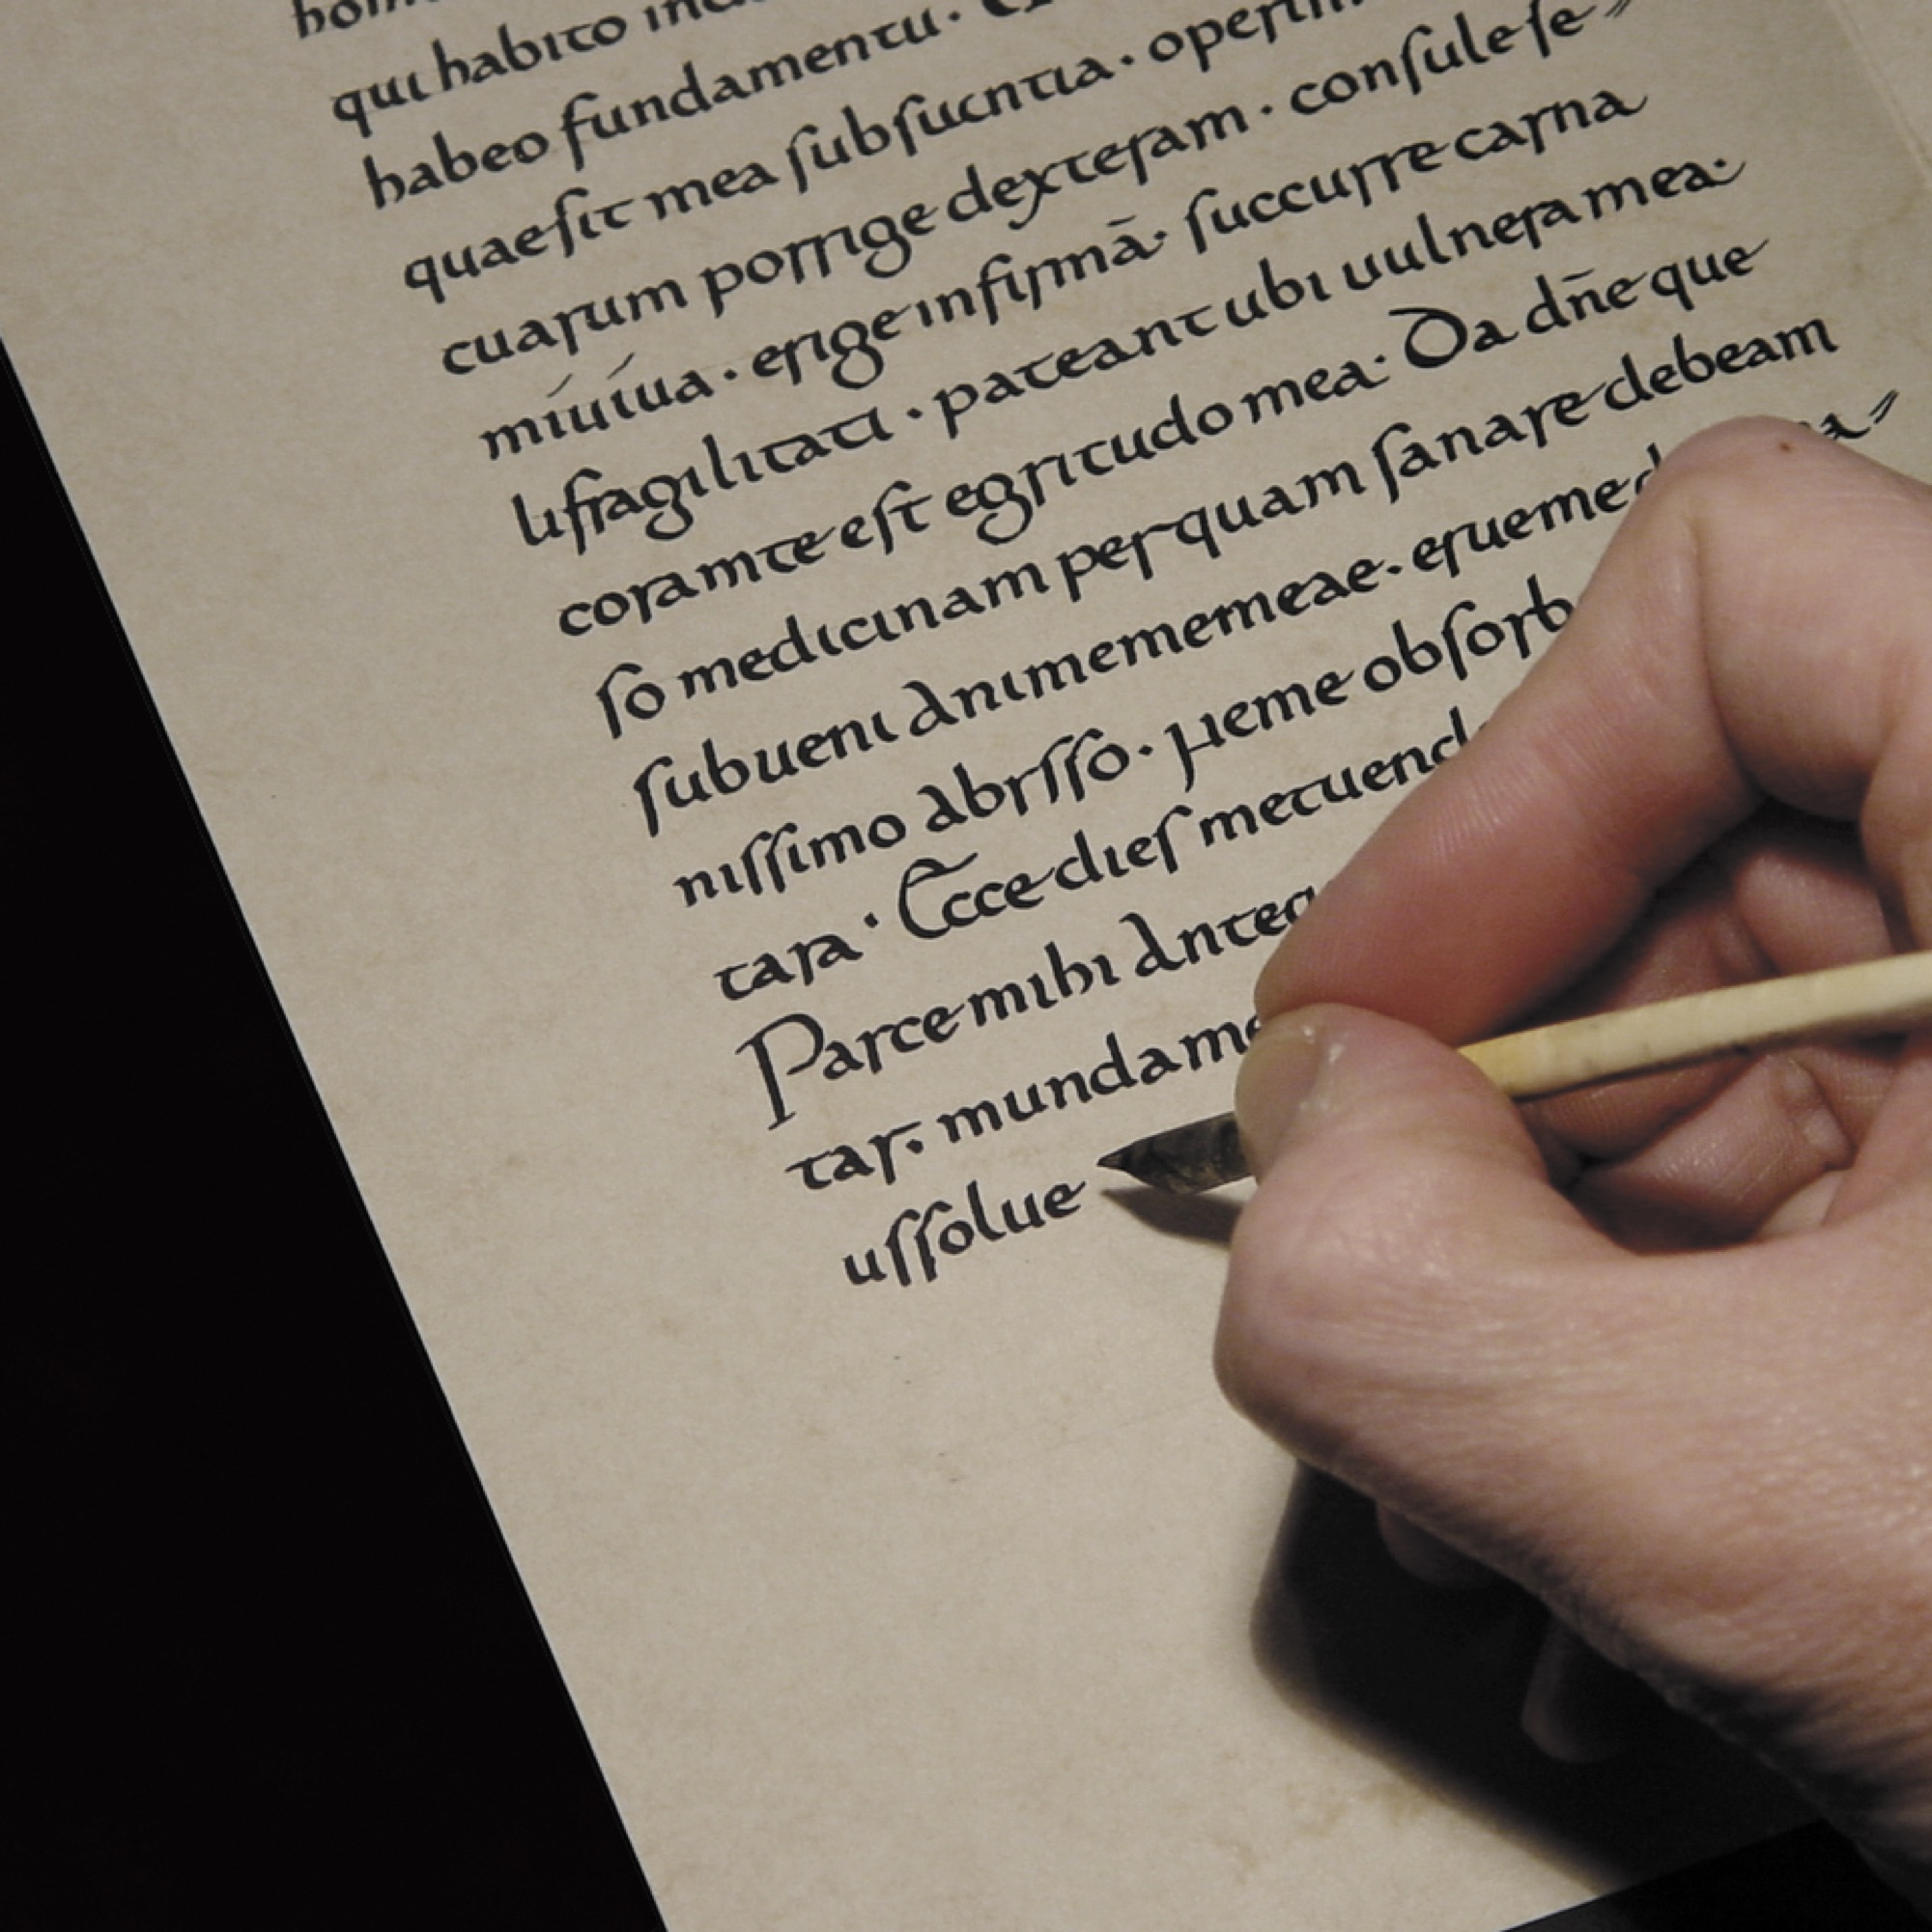 qui habito in
habeo fundamentu ·
quae sit mea subsucntia ·
cuarum porrige dexteram · consule se〃
míuíua · erige infirmā · succurre carna
li fragilitati · pateant ubi uulnera mea ·
coram te est egritudo mea · Da dñe que
so medicinam per quam sanare debeam
subueni animememeae · erueme
nissimo abrsso · Heme obsorb
tara · Ecce dies metuend
Parce mihi
tar · mundame
ussolue